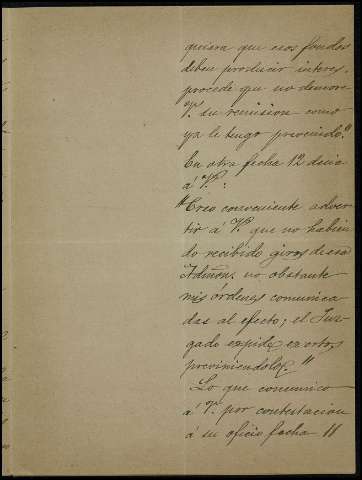 quiera que esos fondos
deben producir interes,
procede que no demore
V. su remision como
ya le tengo prevenido."
En otra fecha 12 decia
á V.:
"Creo conveniente adver-
tir á V. que no habien
do recibido giros de esa
Admon, no obstante
mis órdenes comunica
das al efecto; el Juz-
gado expide exortos
previniendolos."
Lo que comunico
á V. por contestacion
á su oficio fecha 11